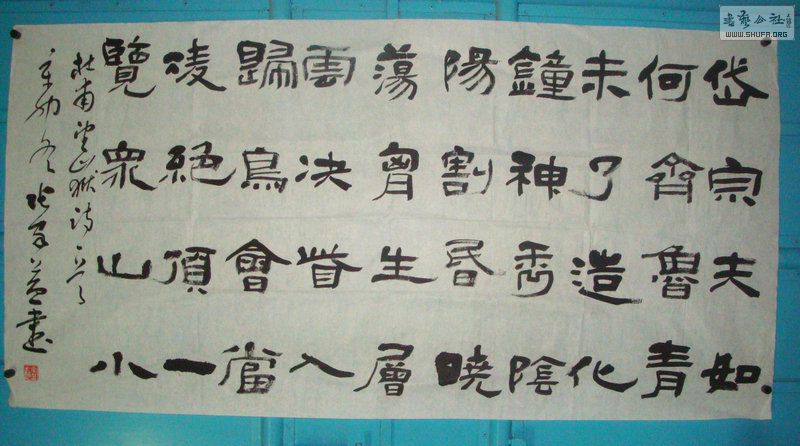 岱宗夫如
何齊魯青
未了造化
鐘神秀陰
陽割昏曉
蕩胷生層
雲決眥入
歸鳥會當
凌絕頂一
覽衆山小
杜甫望嶽詩一首
冬 益書
書藝公社
WWW.SHUFA.ORG